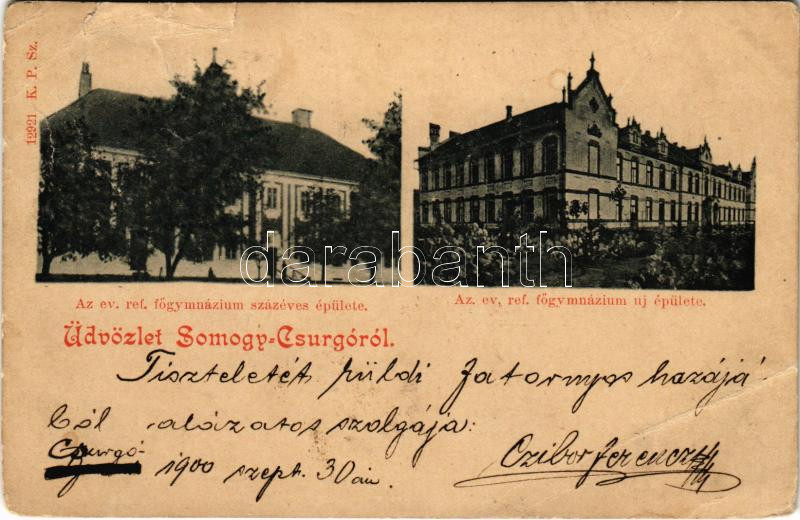 12921 K. P. Sz.
darabanth
Az ev. ref. főgymnázium százéves épülete.
Az. ev, ref. főgymnázium uj épülete.
Üdvözlet Somogy-Csurgóról.
Tiszteletét küldi Jatornyos hazájá
ból alázatos szolgája:
Csurgó
1900 szept. 30án
Czibor Ferencz